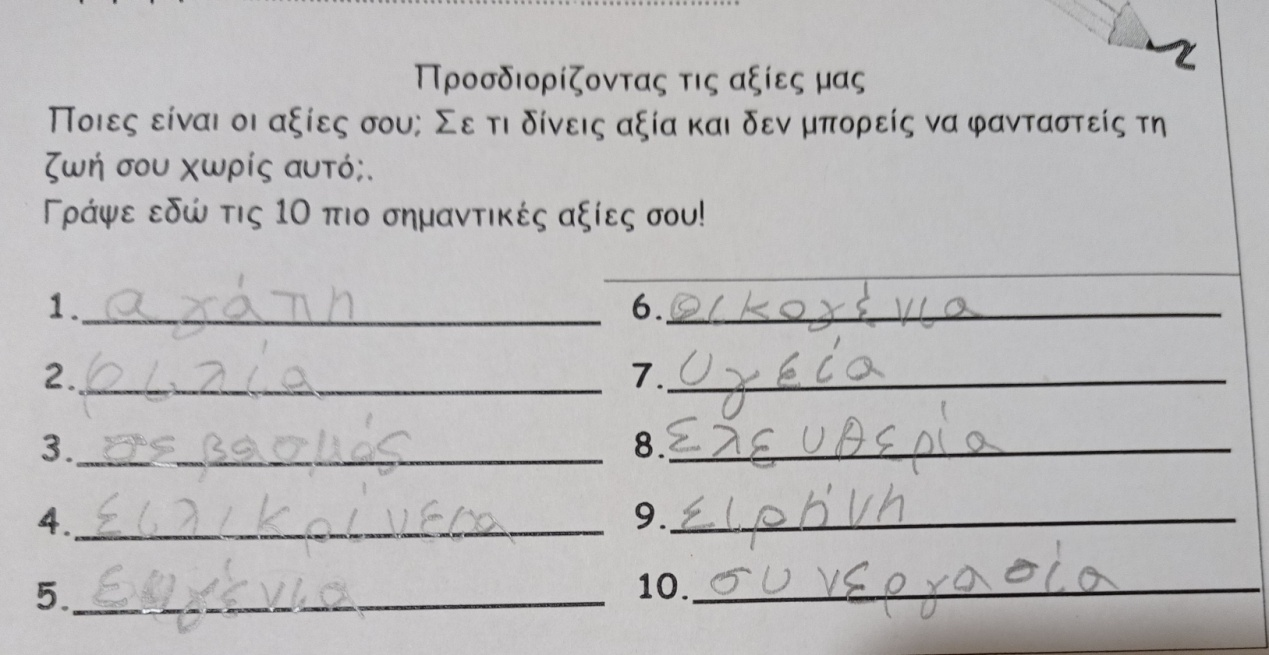 Προσδιορίζοντας τις αξίες μας
Ποιες είναι οι αξίες σου; Σε τι δίνεις αξία και δεν μπορείς να φανταστείς τη
ζωή σου χωρίς αυτό;.
Γράψε εδώ τις 10 πιο σημαντικές αξίες σου!
1. αγάπη
2. φιλία
3. σεβασμός
4. ειλικρίνεια
5. ευγένια
6. οικογένια
7. υγεία
8. ελευθερία
9. ειρήνη
10. συνεργασία